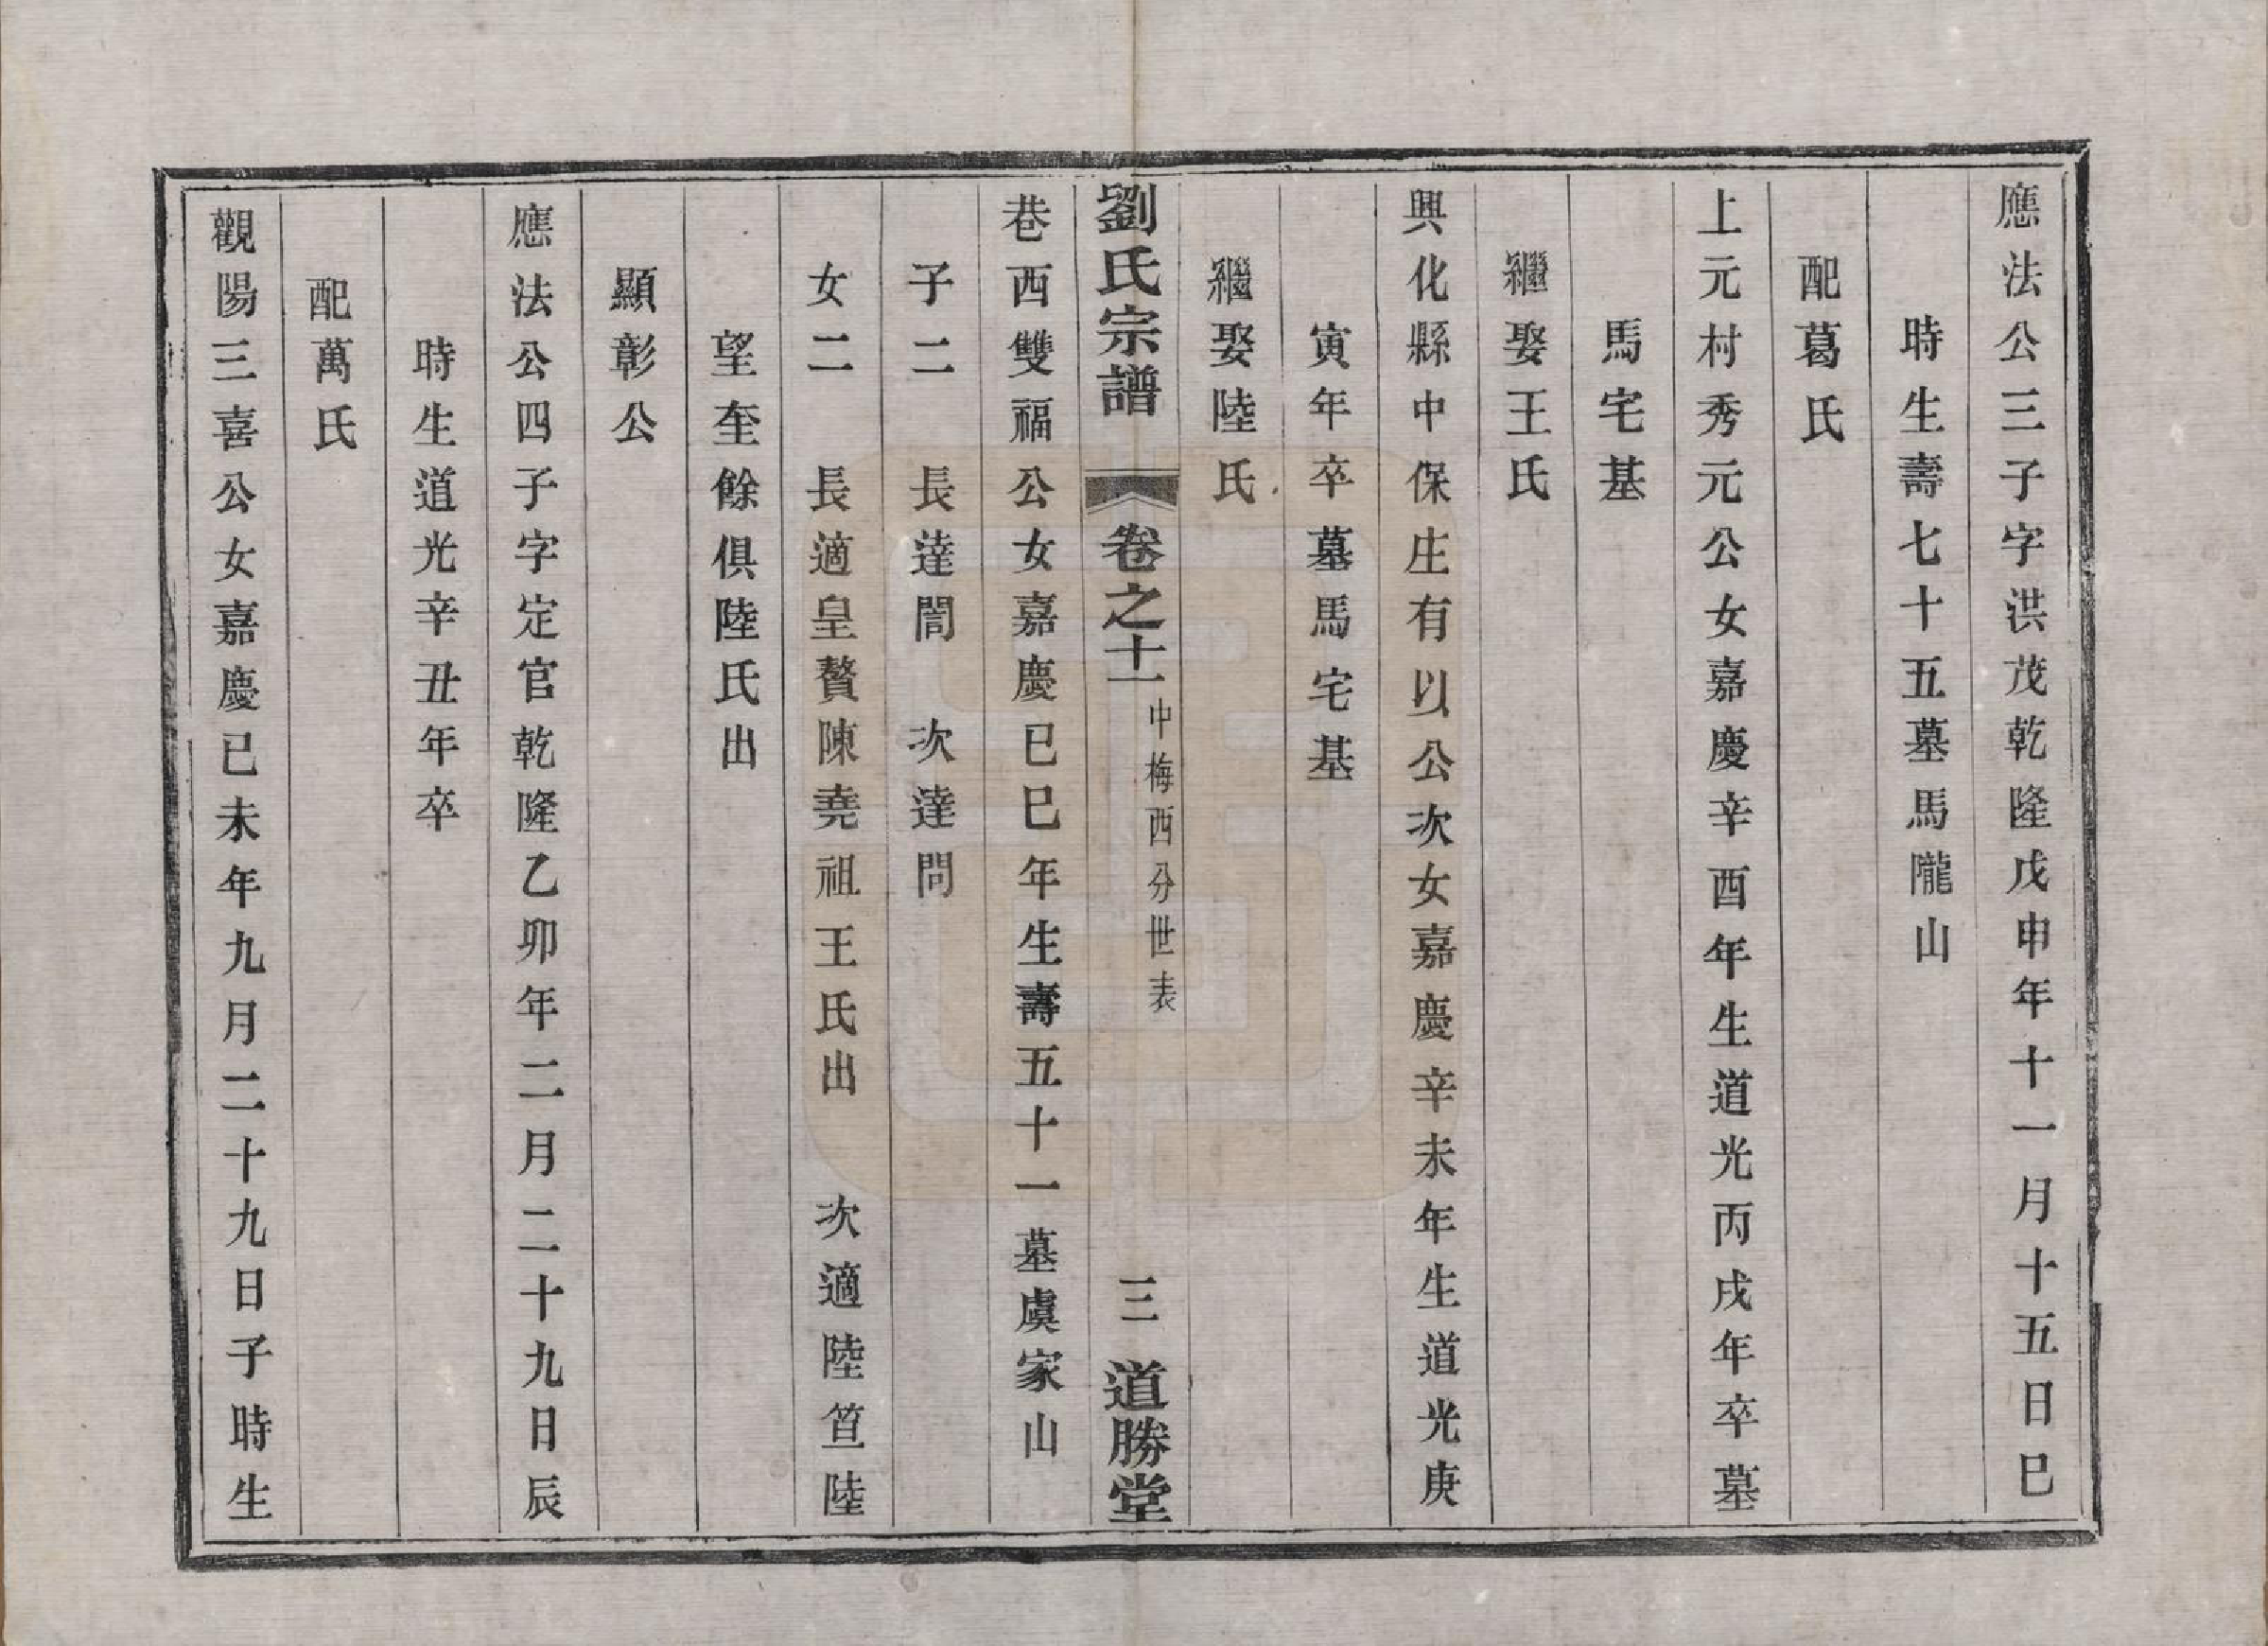 應法公三子字洪茂乾隆戊申年十一月十五日巳
時生壽七十五墓馬隴山
配葛氏
上元村秀元公女嘉慶辛酉年生道光丙戌年卒墓
馬宅基
繼娶王氏
興化縣中保庄有以公次女嘉慶辛未年生道光庚
寅年卒墓馬宅基
繼娶陸氏
劉氏宗譜 卷之十一 中梅西分世表 三 道勝堂
巷西雙福公女嘉慶己巳年生壽五十一墓虞家山
子二 長達誾 次達問
女二 長適皇贅陳堯祖王氏出 次適陸笪陸
望奎餘俱陸氏出
顯彰公
應法公四子字定官乾隆乙卯年二月二十九日辰
時生道光辛丑年卒
配萬氏
觀陽三喜公女嘉慶己未年九月二十九日子時生